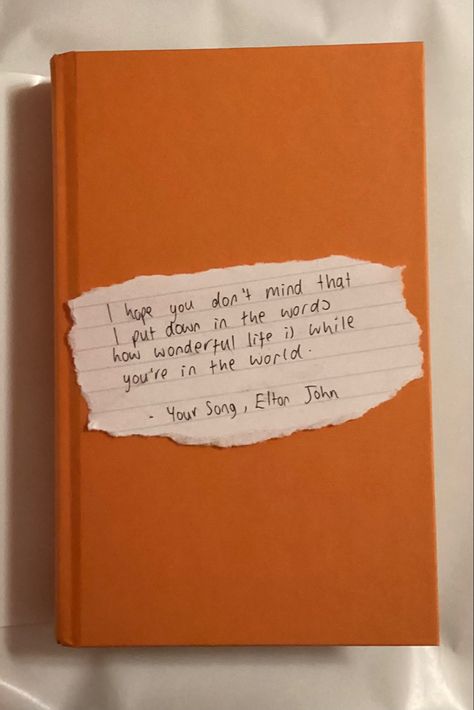 I hope you don't mind that
I put down in the words
how wonderful life is while
you're in the world.
- Your Song, Elton John